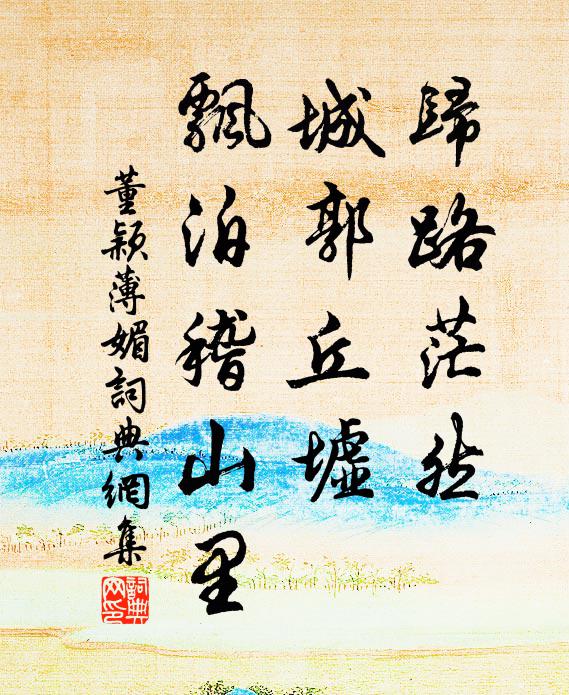 歸路茫然
城郭丘墟
飄泊稽山里
董穎薄媚詞典網集